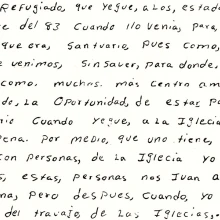 Refugiado, que Yegue, a Los, estad
e del 83 cuando iio venia, para,
que era, santuario, Pues como,
e venimos, sin saver, para donde,
como. muchos. más centro am
do, La oportunidad, de estar p
rie cuando Yegue, a la Iglecia
Pena. Por medio, que uno tiene,
con personas, de La Iglecia yo
s, estas, personas nos Ivan a
na, pero des pues, cuando, yo
del travajo, de Las Iglecias,